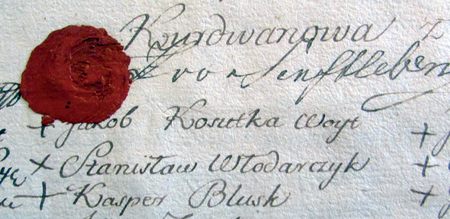 Kurdwanowa
Senftleben
+ Jakob Kosutka Woyt +
+ Stanisław Włodarczyk +
+ Kasper Blusk +